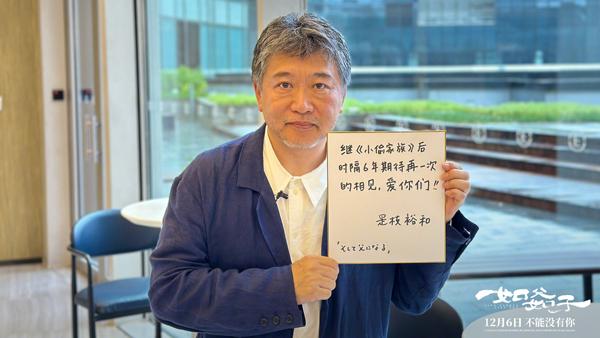 继《小偷家族》后
时隔6年期待再一次
的相见，爱你们!!
是枝裕和
「そして父になる」
如父如子
12月6日 不能没有你